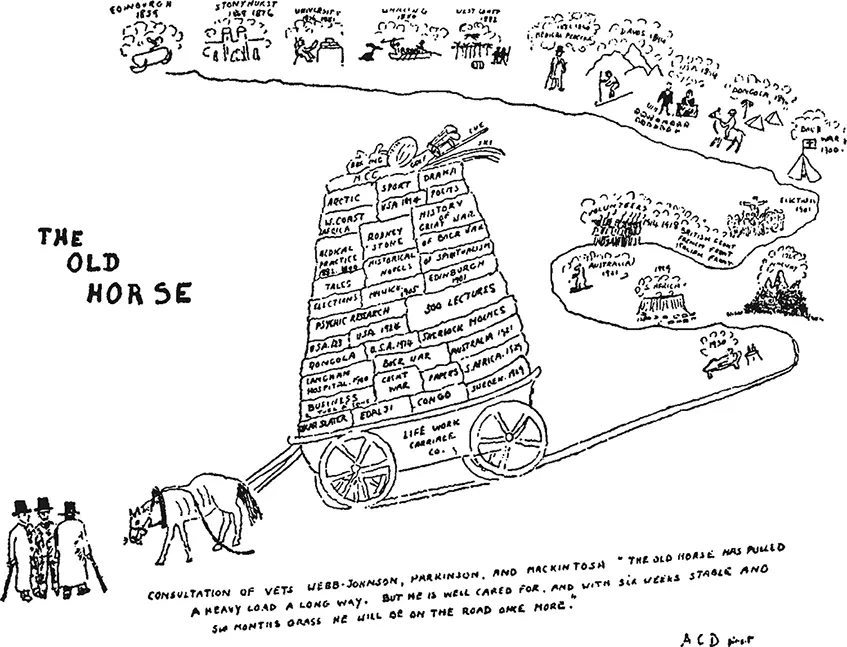 EDINBURGH
1859
STONYHURST
1869 1876
UNIVERSITY
WHALING
1880
WEST COAST
1882
MEDICAL PRACTICE
DAVOS 1894
USA 1894
DONGOLA
BOER
WAR
1900
ELECTION
1901
VOLUNTEERS
1914 1918
BRITISH FRONT
FRENCH FRONT
ITALIAN FRONT
AUSTRALIA
1921
1929
S. AFRICA
1930
THE
OLD
HORSE
CUE
SKI
GOLF
BOXING
M.C.C.
ARCTIC
SPORT
DRAMA
USA 1894
POEMS
W. COAST
AFRICA
HISTORY
OF
GREAT WAR
RODNEY
STONE
MEDICAL
PRACTICE
1882. 1890
OF BOER WAR
HISTORICAL
NOVELS
OF SPIRITUALISM
TALES
EDINBURGH
1901
ELECTIONS
1905
500 LECTURES
PSYCHIC RESEARCH
USA. 123
USA 1924
SHERLOCK HOLMES
DONGOLA
U.S.A. 1914
BOER WAR
AUSTRALIA 1921
LANGHAM
HOSPITAL. 1900
GREAT
WAR
PAPERS
S. AFRICA. 1929
BUSINESS
OSCAR SLATER
EDALJI
CONGO
SWEDEN. 1929
LIFE WORK
CARRIAGE
CO.
CONSULTATION OF VETS WEBB-JOHNSON, PARKINSON, AND MACKINTOSH "THE OLD HORSE HAS PULLED
A HEAVY LOAD A LONG WAY. BUT HE IS WELL CARED FOR, AND WITH SIX WEEKS STABLE AND
SIX MONTHS GRASS HE WILL BE ON THE ROAD ONCE MORE."
A C D